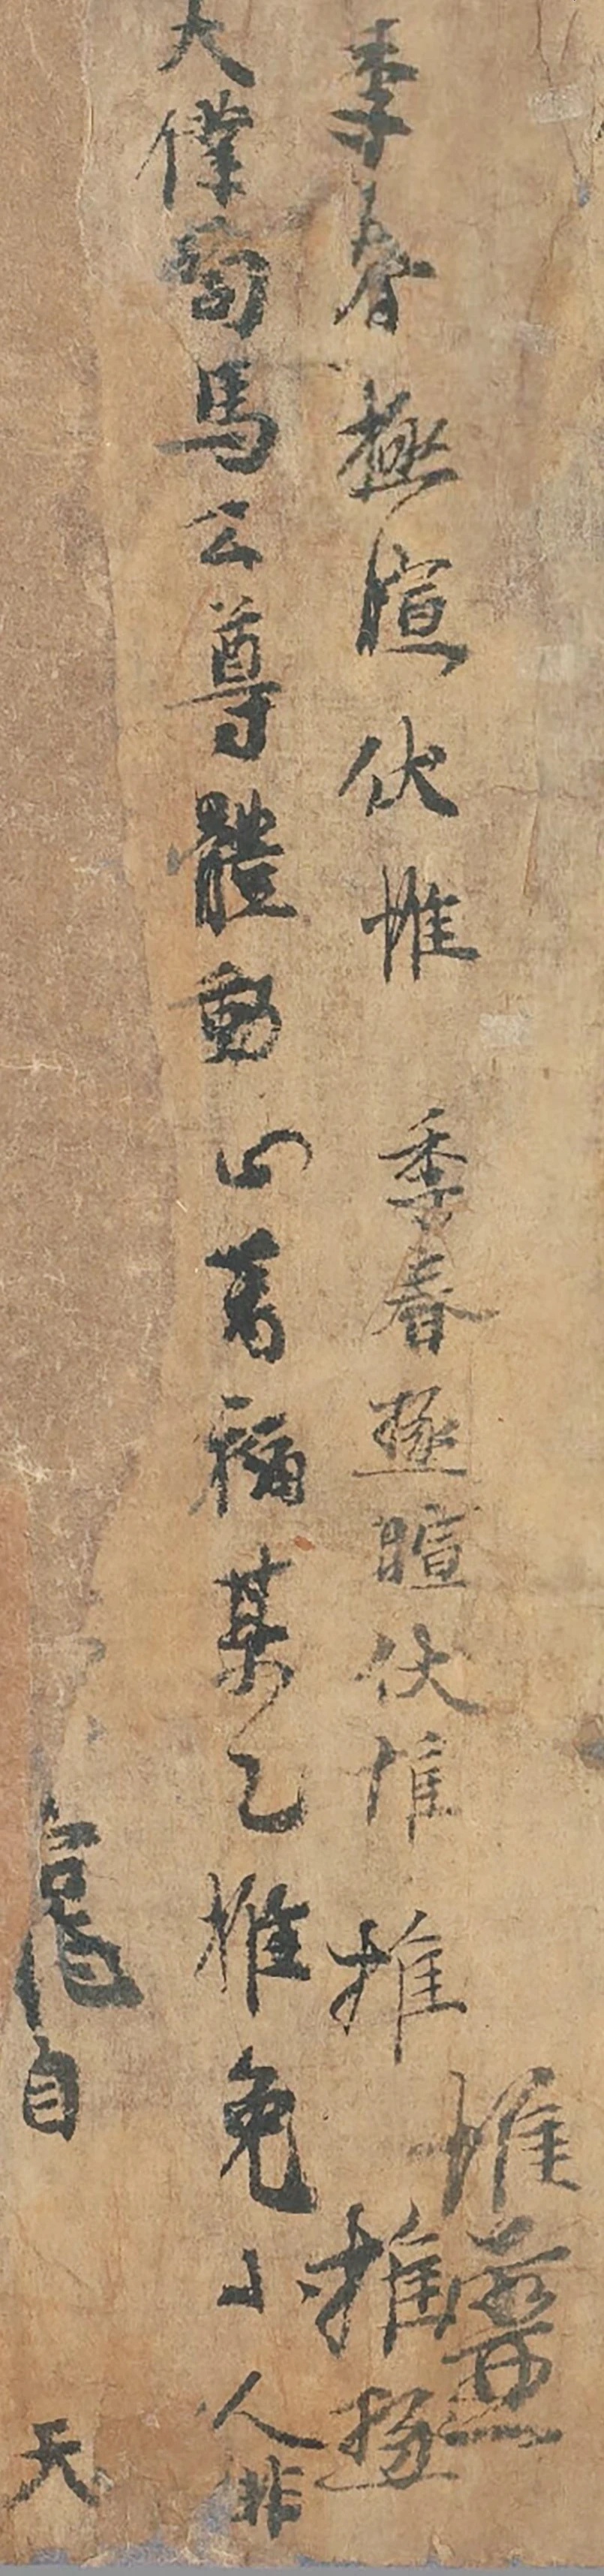 季春極暄伏惟 季春極暄伏惟推
惟
推極
大僕司馬公尊體動止萬福某乙推免小人非
自
天